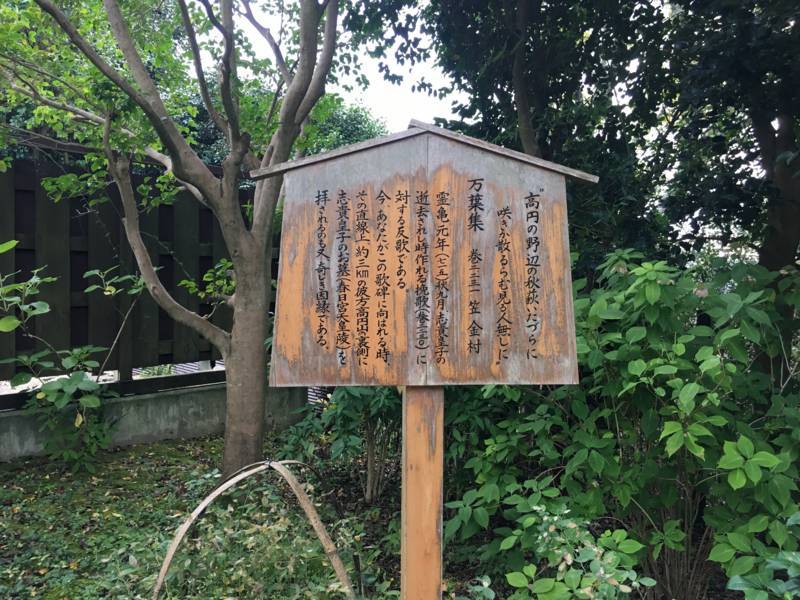 "高円の野辺の秋萩いたづらに
咲きか散るらむ見る人無しに"
万葉集 巻二-二三一 笠 金村
霊亀元年(七一五)秋九月、志貴皇子の
逝去された時作れる挽歌(巻二-二三〇)に
対する反歌である
今、あなたがこの歌碑に向はれる時、
その直線上、約三kmの彼方高円山の裏側に
志貴皇子のお墓(春日宮天皇陵)を
拝されるのも又、奇しき因縁である。